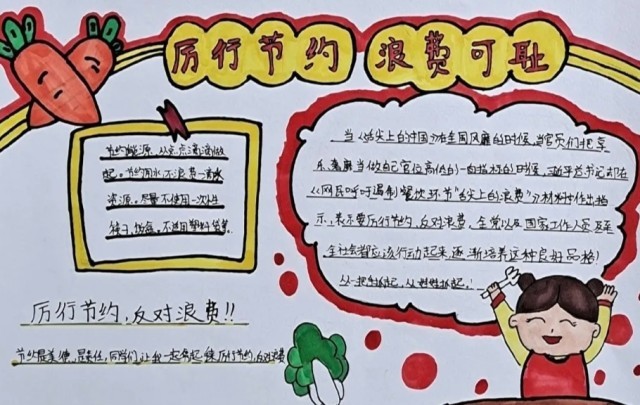 厉行节约 浪费可耻
节约能源,从点点滴滴做
起。节约用水,不浪费一滴水
资源。尽量不使用一次性
筷子,饭盒,不适用塑料袋等。
当《舌尖上的中国》在全国风靡的时候,当官员们把享
乐、奢靡当做自己官位高低的一向指标的时候,习近平总书记却在
《网民呼吁遏制餐饮环节"舌尖上的浪费"》材料时作出指
示,表示要厉行节约,反对浪费,全党以及国家工作人员乃至
全社会都应该行动起来,逐渐培养这种良好品格!
厉行节约,反对浪费!!
节约是美德,是责任,同学们,让我一起奋起,厉行节约,反对浪费